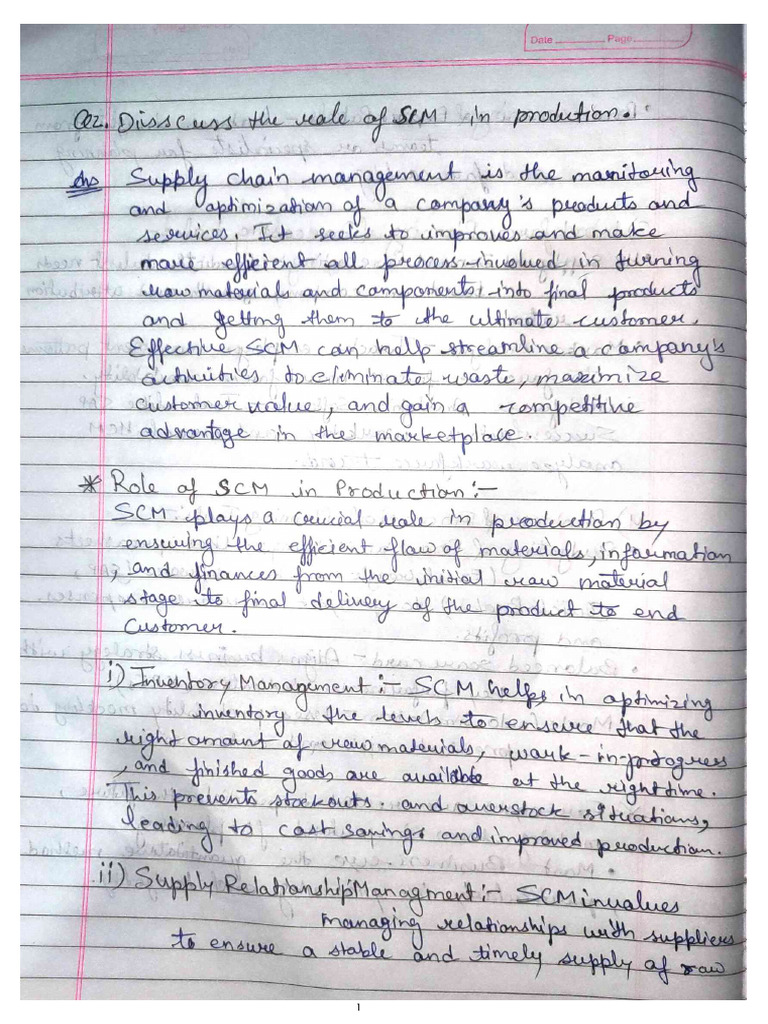 Date Page
Q2. Disscuss the role of SCM in prodution.
Ans Supply chain management is the monitoring
and optimization of a company's products and
services. It seeks to improves and make
more efficient all process involved in turning
raw materials and components, into final products
and getting them to the ultimate customer.
Effective SCM can help streamline a company's
activities to eliminate waste, maximize
customer value, and gain a competitive
advantage in the marketplace.
* Role of SCM in Production :-
SCM plays a crucial role in production by
ensuring the efficient flow of materials, information
, and finances from the initial raw material
stage to final delivery of the product to end
customer.
i) Inventory Management :- SCM helps in optimizing
inventory the levels to ensure that the
right amount of raw materials, work-in-progress
, and finished goods are available at the right time.
This prevents stockouts and overstock situations,
leading to cost savings and improved production.
ii) Supply Relationship Managment :- SCM involves
managing relationships with suppliers
to ensure a stable and timely supply of raw
1